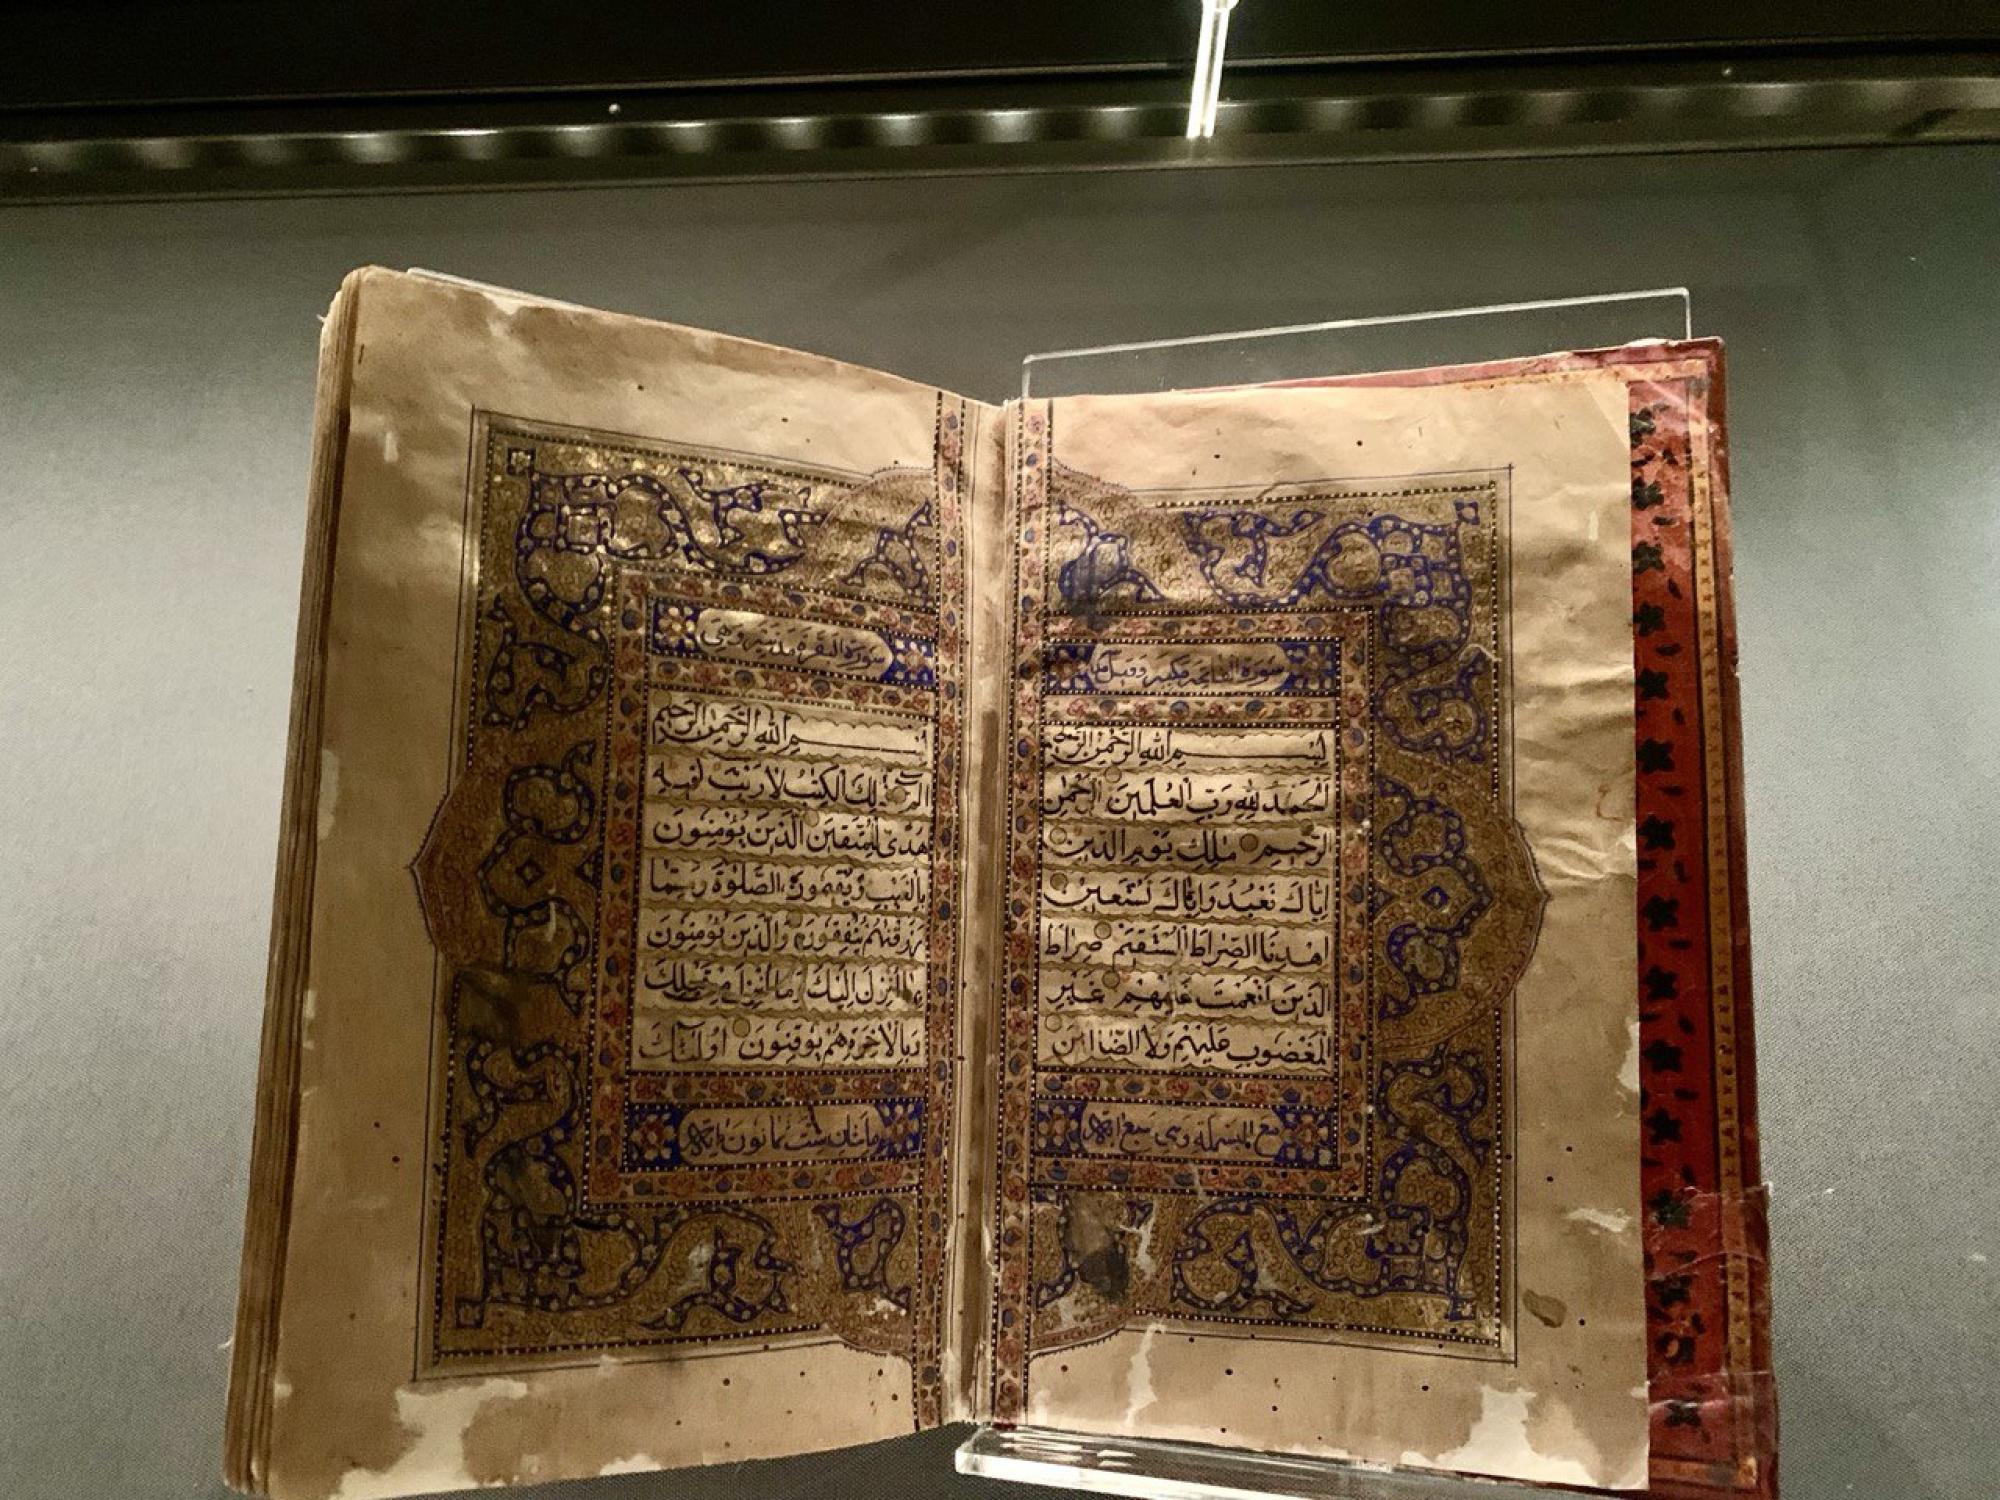 سورة الفاتحة مكية وقيل
بسم الله الرحمن الرحيم
الحمد لله رب العلمين الرحمن
الرحيم ملك يوم الدين
اياك نعبد واياك نستعين
اهدنا الصراط المستقيم صراط
الذين انعمت عليهم غير
المغضوب عليهم ولا الضالين
مع البسملة وهي سبع ايات
سورة البقرة مدنية وهي
بسم الله الرحمن الرحيم
الم ذلك الكتب لا ريب فيه
هدى للمتقين الذين يؤمنون
بالغيب ويقيمون الصلوة ومما
رزقنهم ينفقون والذين يؤمنون
بما انزل اليك وما انزل من قبلك
وبالاخرة هم يوقنون اولئك
مائتان ست ثمانون اية